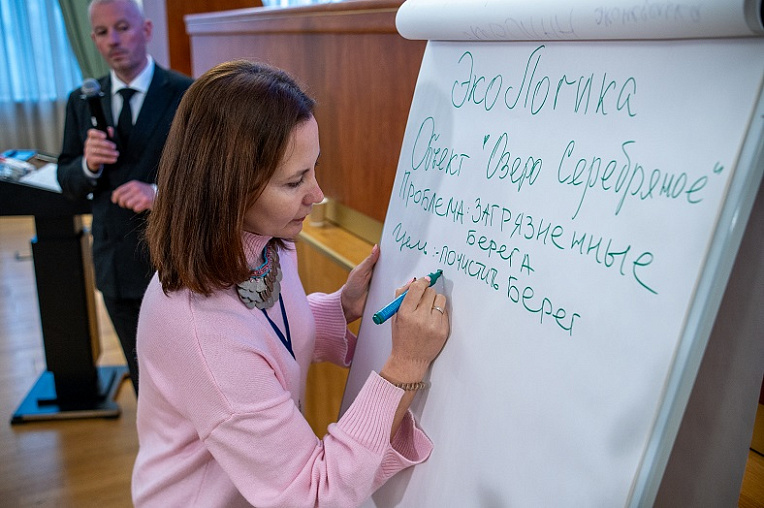 ЭкоЛогика
Объект "Озеро Серебряное"
Проблема: ЗАГРЯЗНЕННЫЕ
берега
Цель:-почистить Берег